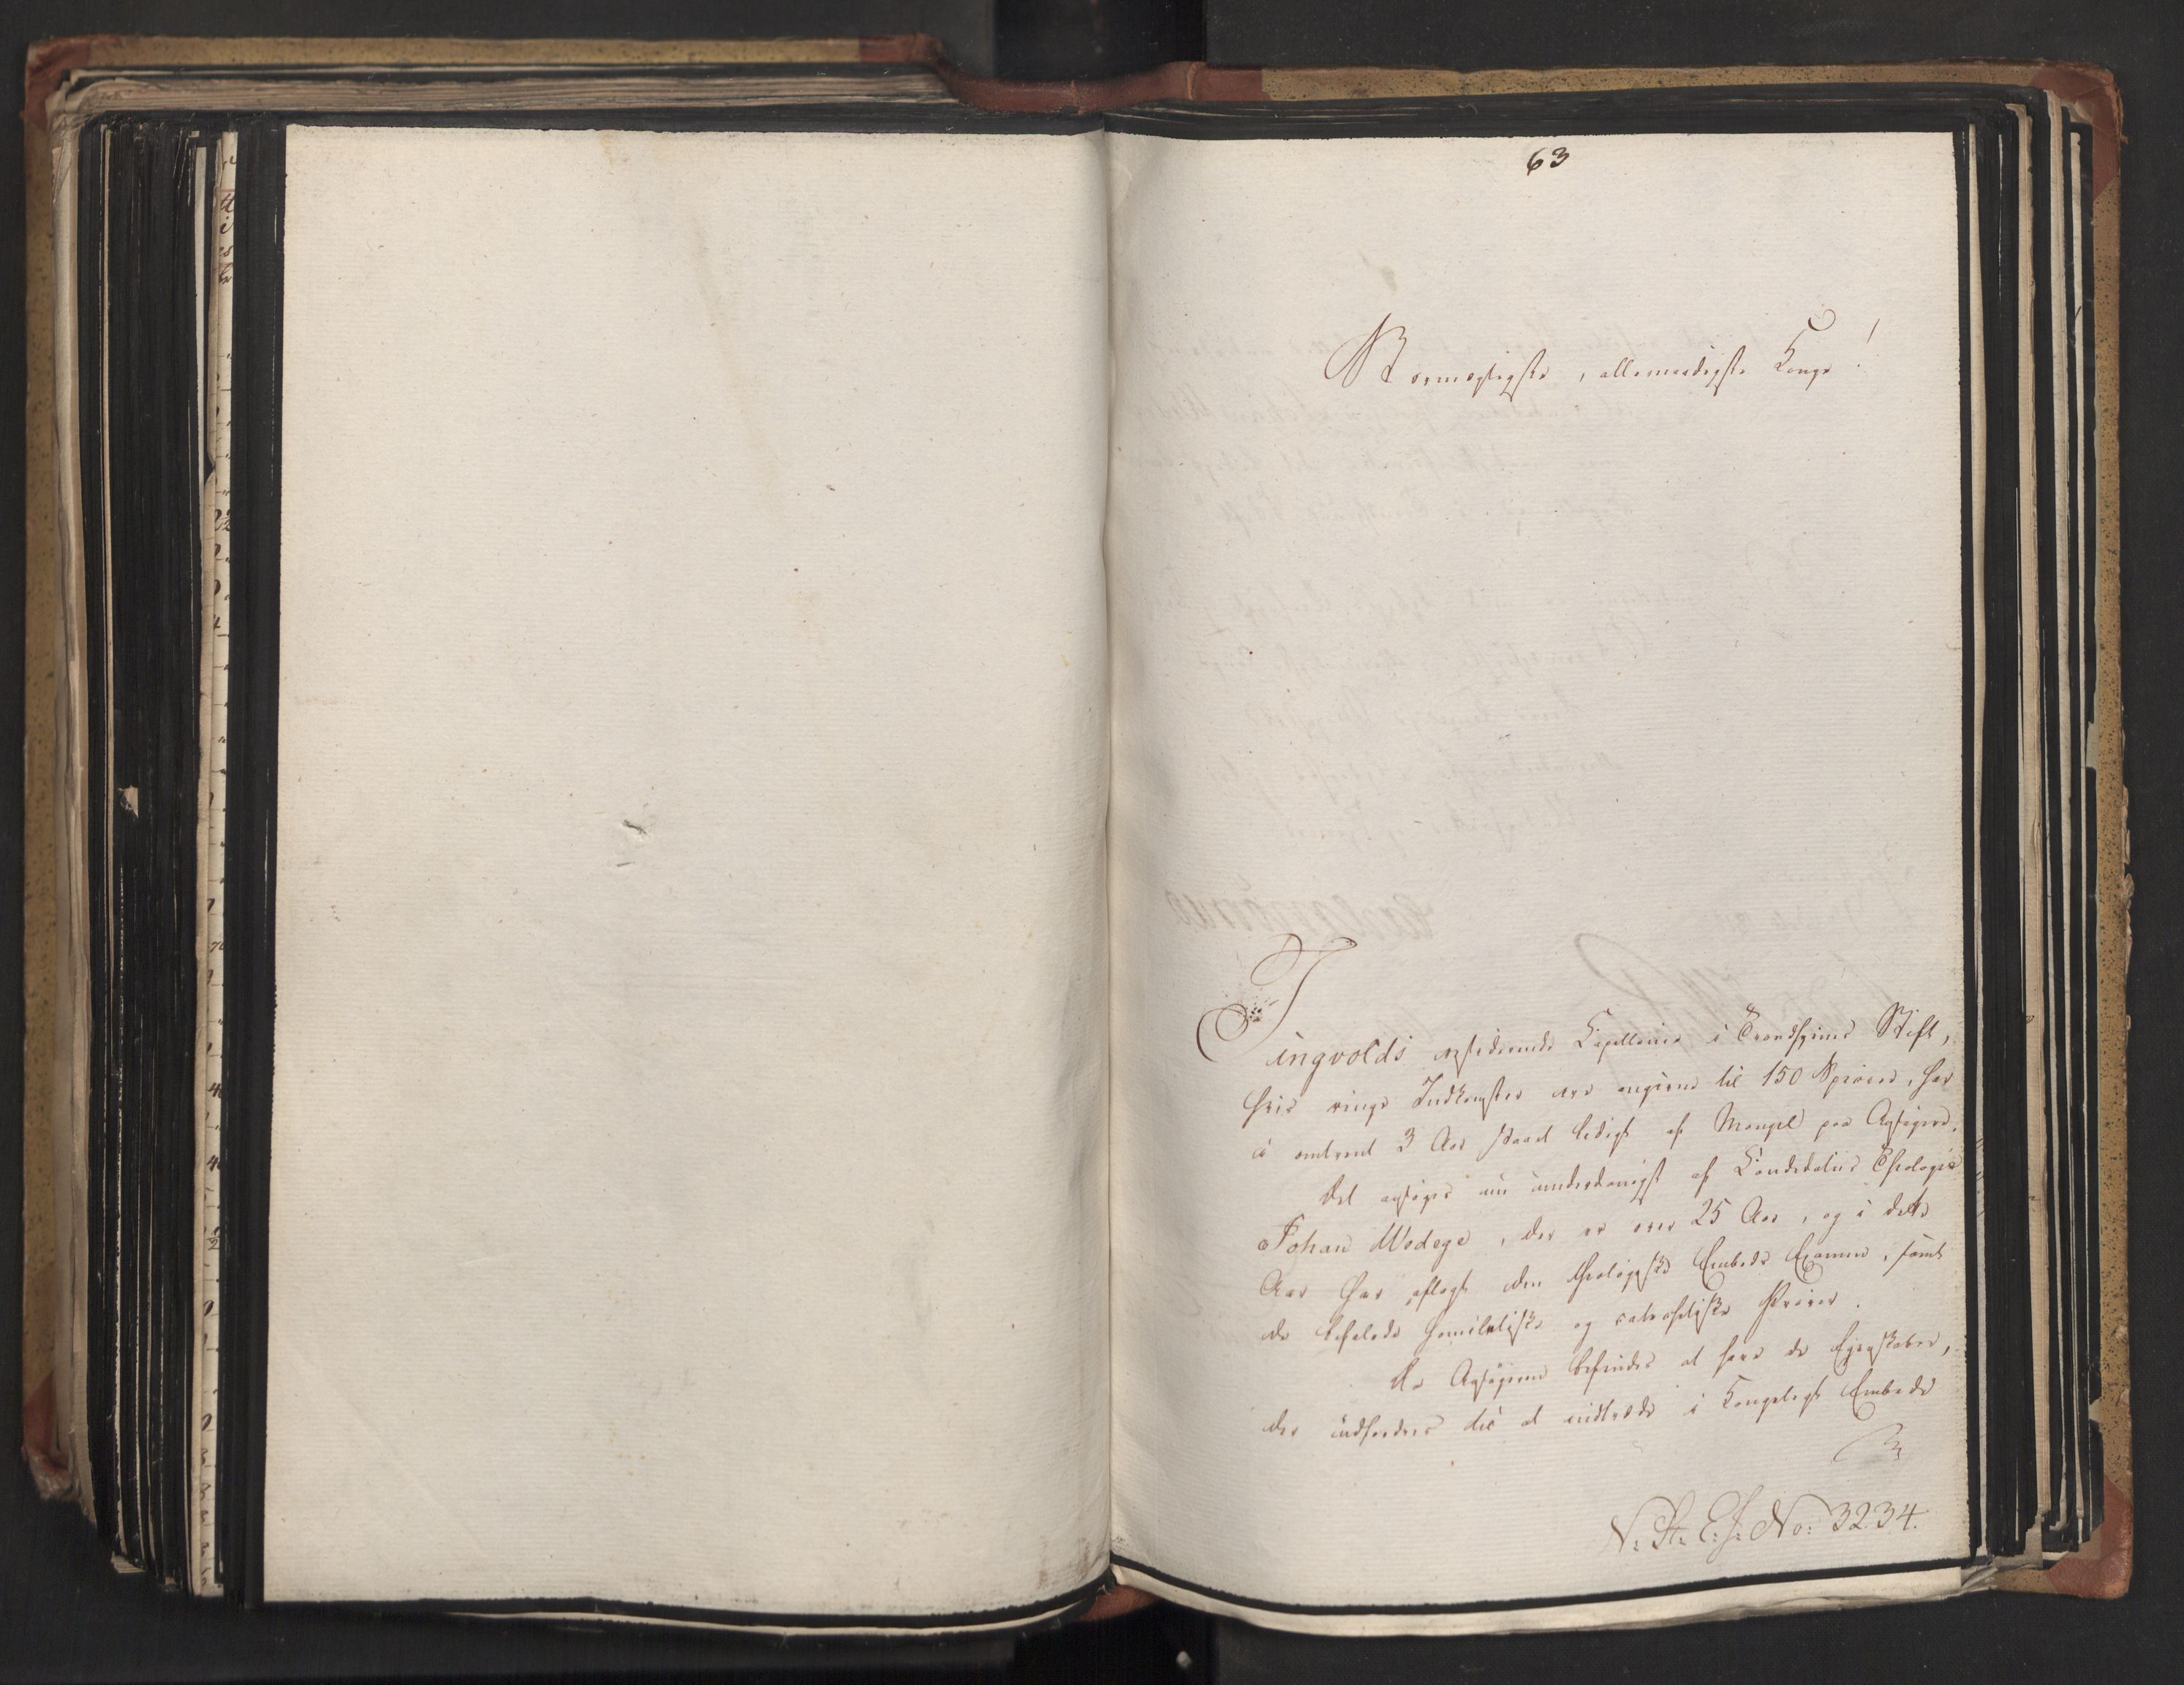 63
Stormægtigste, allernaadigste Konge!
Tingvolds residerende Capellanie i Trondhjems Stift,
hvis ringe Indkomster ere angivne til 150 Spècier, har
i omtrent 3 Aar staaet ledigt af Mangel paa Ansøgere.
Det ansøges nu underdanigst af Candidatus Theologiæ
Johan Wedege, der er over 25 Aar, og i dette
Aar har aflagt den theologiske Embeds Examen, samt
de befalede homiletiske og catechetiske Prøver.
Da Ansøgeren befindes at have de Egenskaber,
der udfordres til at indtræde i Kongeligt Embede
N: St: C: J: No: 3234.